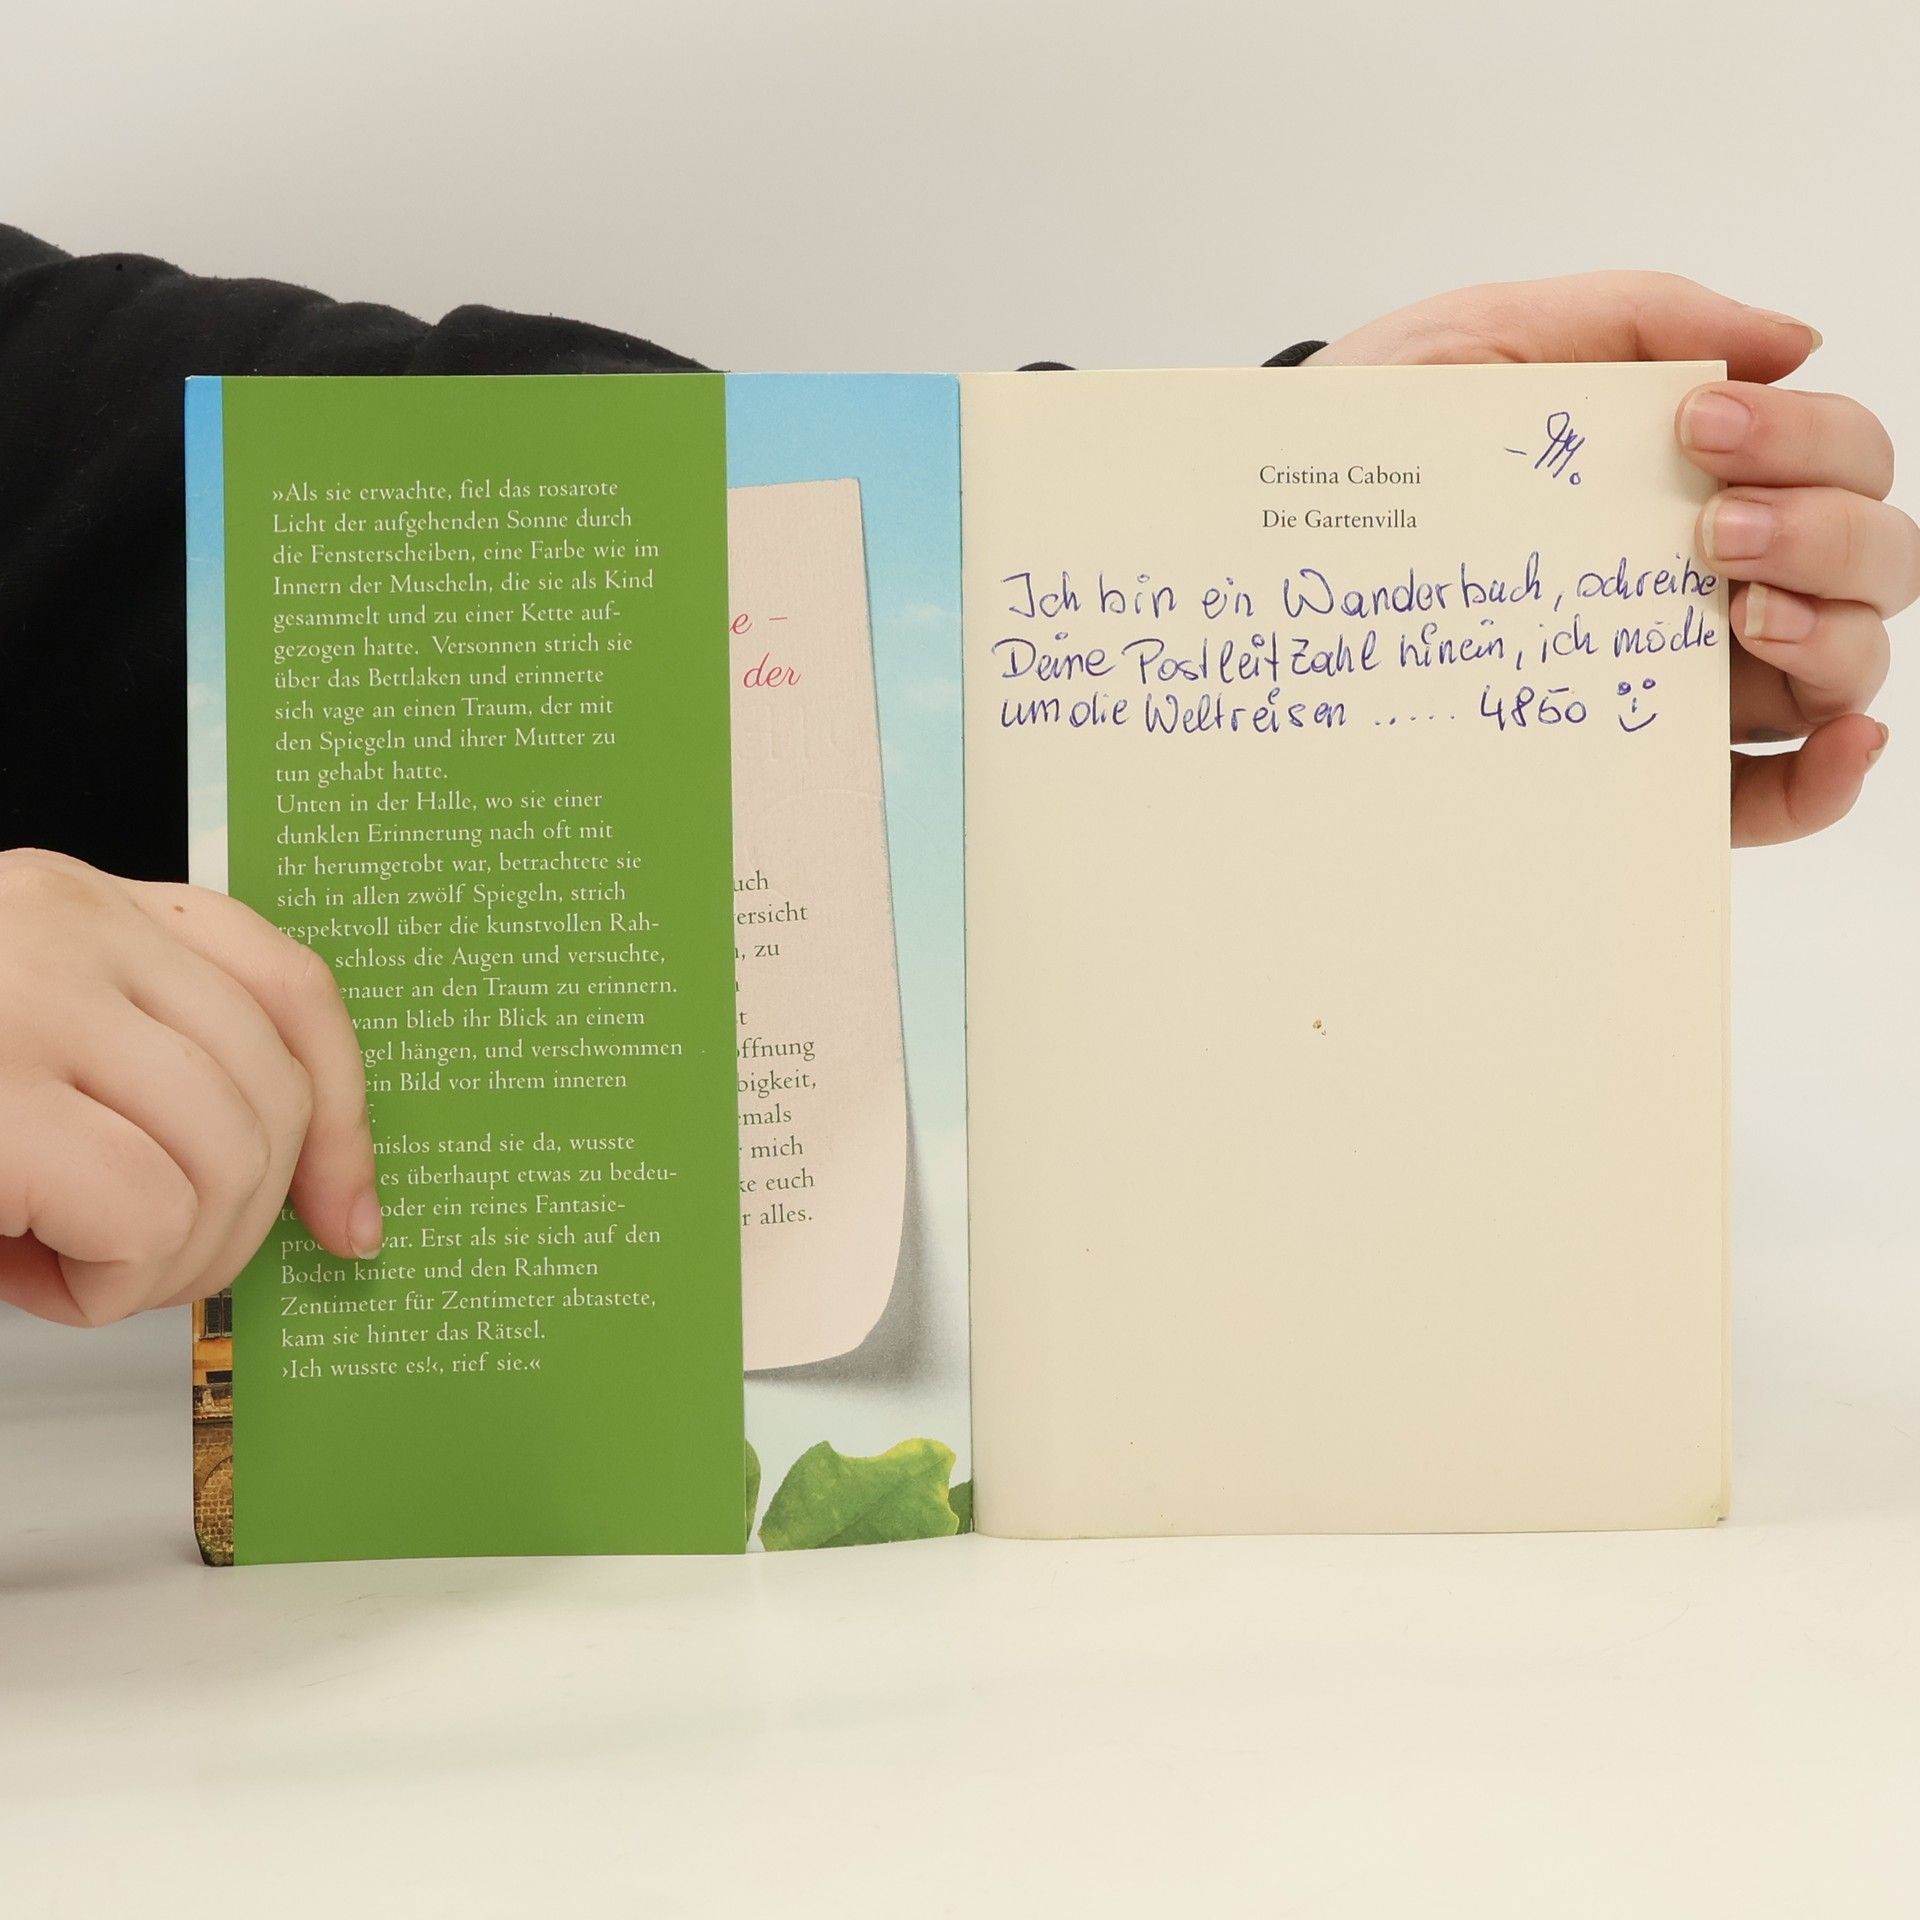 »Als sie erwachte, fiel das rosarote
Licht der aufgehenden Sonne durch
die Fensterscheiben, eine Farbe wie im
Innern der Muscheln, die sie als Kind
gesammelt und zu einer Kette auf-
gezogen hatte. Versonnen strich sie
über das Bettlaken und erinnerte
sich vage an einen Traum, der mit
den Spiegeln und ihrer Mutter zu
tun gehabt hatte.
Unten in der Halle, wo sie einer
dunklen Erinnerung nach oft mit
ihr herumgetobt war, betrachtete sie
sich in allen zwölf Spiegeln, strich
respektvoll über die kunstvollen Rah-
schloss die Augen und versuchte,
enauer an den Traum zu erinnern.
wann blieb ihr Blick an einem
gel hängen, und verschwommen
ein Bild vor ihrem inneren
f.
nislos stand sie da, wusste
es überhaupt etwas zu bedeu-
te oder ein reines Fantasie-
pro war. Erst als sie sich auf den
Boden kniete und den Rahmen
Zentimeter für Zentimeter abtastete,
kam sie hinter das Rätsel.
›Ich wusste es!‹, rief sie.«
e –
der
uch
ersicht
, zu
t
ffnung
bigkeit,
emals
mich
ke euch
r alles.
Cristina Caboni
Die Gartenvilla
Ich bin ein Wanderbuch, schreibe
Deine Postleitzahl hinein, ich möchte
um die Weltreisen ..... 4850